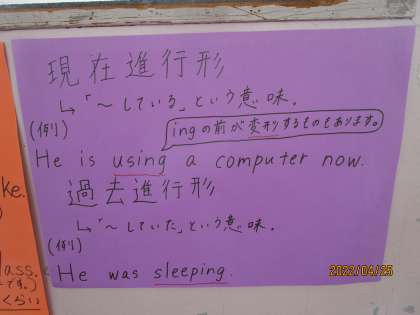 現在進行形
↳「～している」という意味.
(例)
ingの前が変形するものもあります。
He is using a computer now.
過去進行形
↳「～していた」という意味.
(例)
He was sleeping.
ke.
lass.
です。)
くらい
2022/04/25